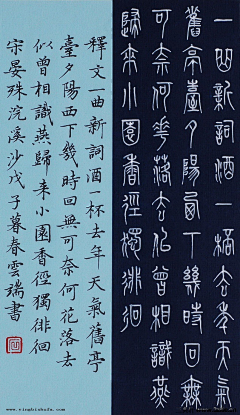 一曲新詞酒一桮去年天气
舊亭臺夕陽西下幾時回無
可奈何花落去佀曾相識燕
歸來小園香徑獨徘徊
釋文一曲新詞酒一杯去年天氣舊亭
臺夕陽西下幾時回無可奈何花落去
似曾相識燕歸来小園香徑獨徘徊
宋晏殊浣溪沙戊子暮春雲端書